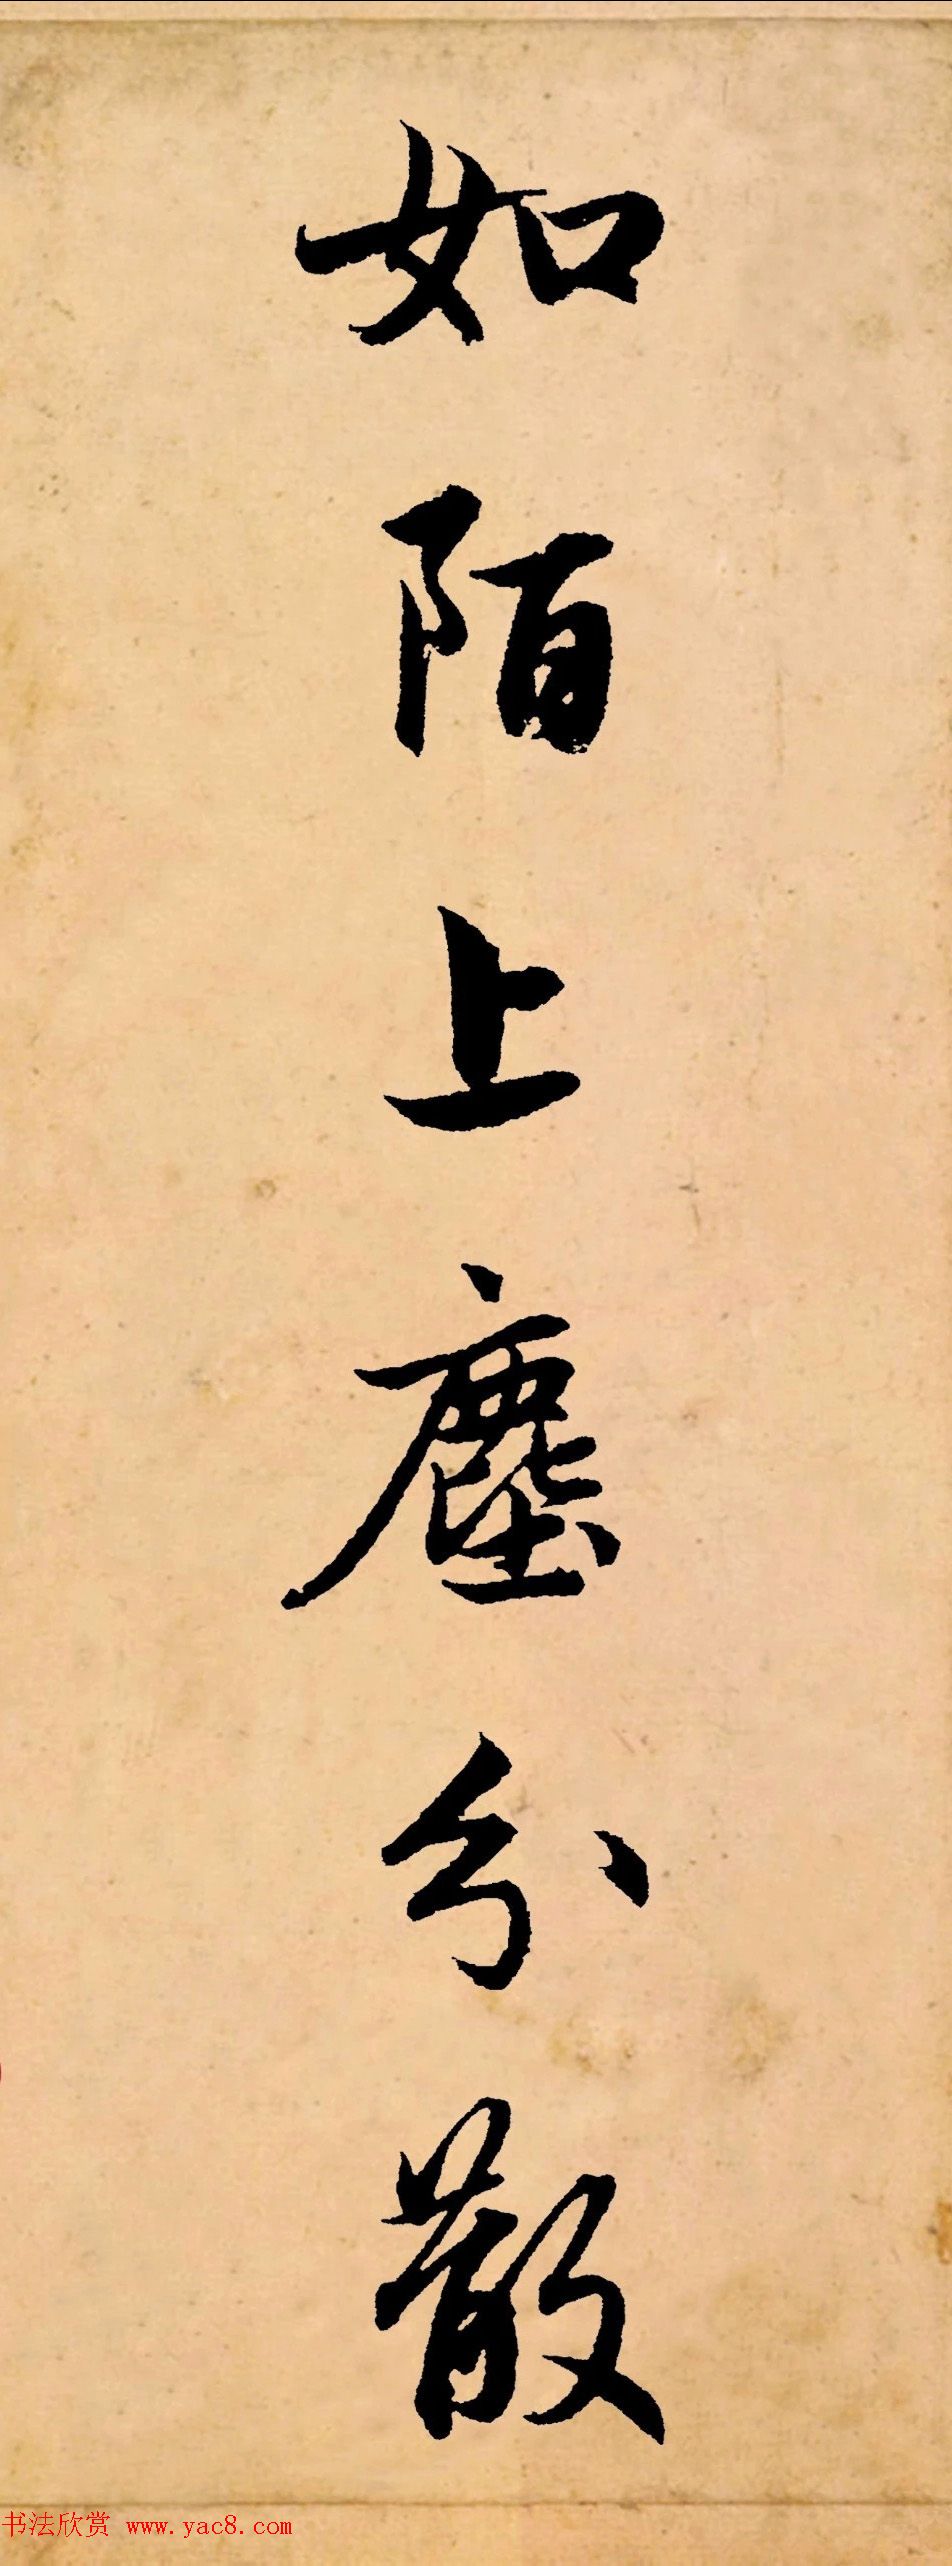 如陌上塵分散
书法欣赏 www.yac8.com